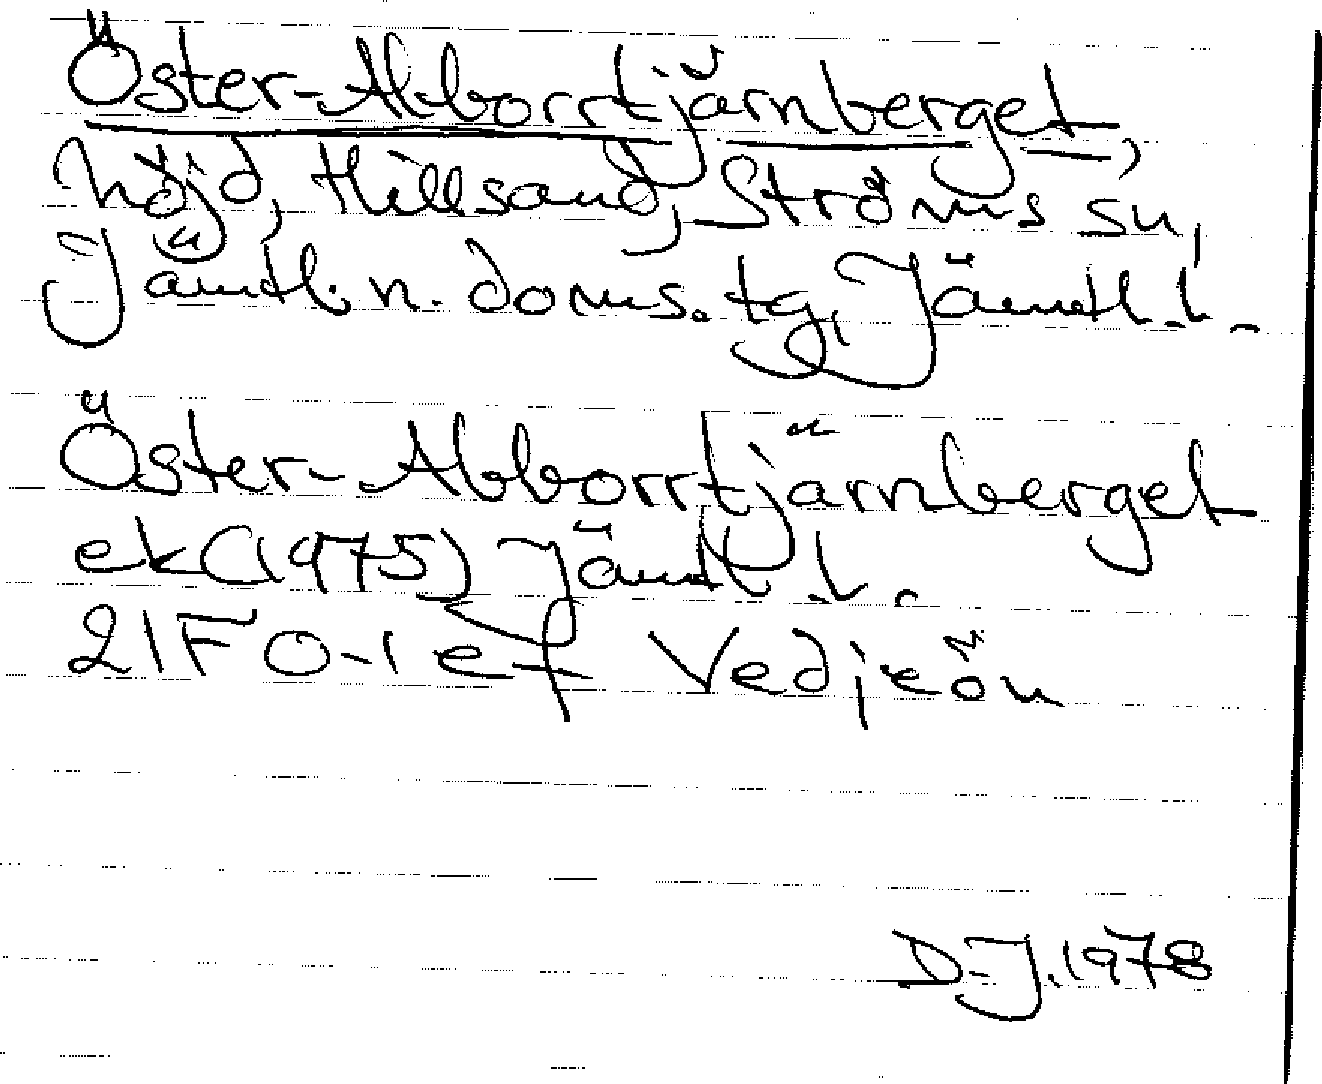 Öster-Abborrtjärnberget,
höjd, Hillsand, Ströms sn,
Jämtl. n. doms. tg, Jämtl. l.
Öster-Abborrtjärnberget
ek (1975) Jämtl. l.
21F 0-1 e-f Vedjeön
D.J. 1978